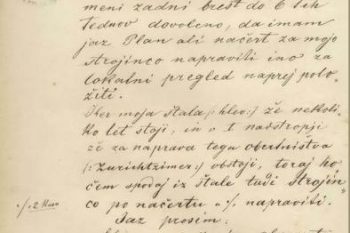 meni zadni brest do 6 tih
tednov dovoleno, da imam
jaz Plan ali načert za mojo
strojinco napraviti ino za
lokalni pregled naprej polo-
žiti.
Ker moja štala /: hlev :/ že nekoli-
ko let stoji, in v I nadstropji
že za naprava tega obertništva
/: Zurichtzimer :/ obstoji, toraj ho-
čem spodaj iz štale tudi Strojin-
co po načertu •/• napraviti.
Jaz prosim: